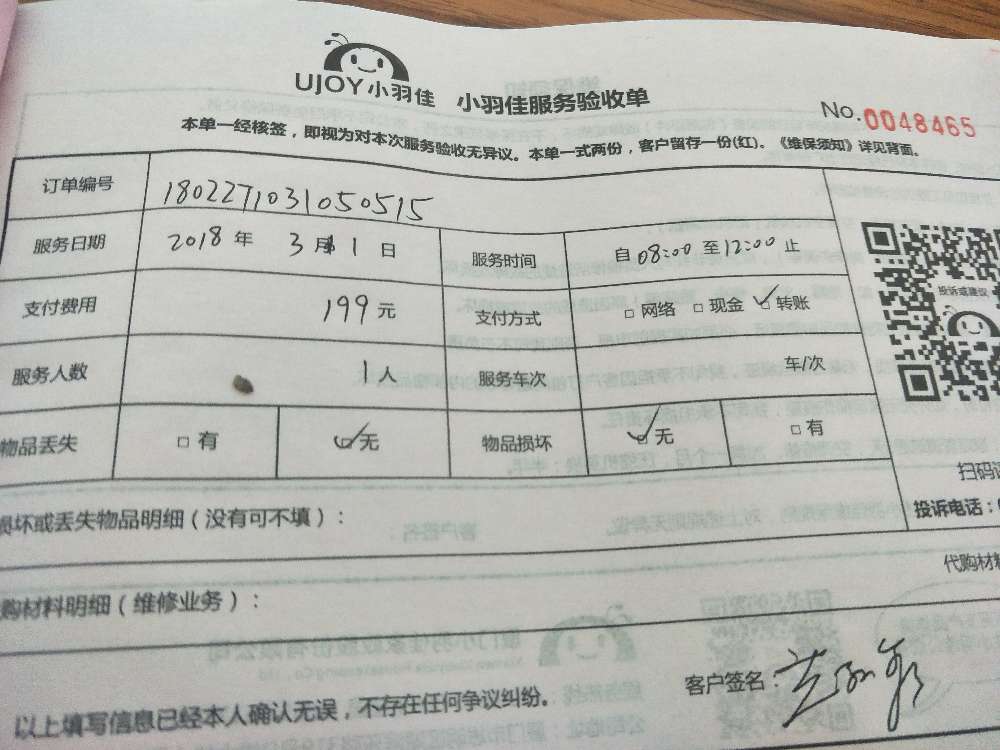 UJOY小羽佳 小羽佳服务验收单
No.0048465
本单一经核签，即视为对本次服务验收无异议。本单一式两份，客户留存一份(红)。《维保须知》详见背面。
订单编号 1802271031050515
服务日期 2018年 3月1日 服务时间 自08:00至12:00止
支付费用 199元 支付方式 □网络 □现金 ☑转账
投诉或建议
服务人数 1人 服务车次 车/次
物品丢失 □有 ☑无 物品损坏 ☑无 □有
扫码
投诉电话：
损坏或丢失物品明细（没有可不填）：
代购材料
购材料明细（维修业务）：
客户签名：
以上填写信息已经本人确认无误，不存在任何争议纠纷。